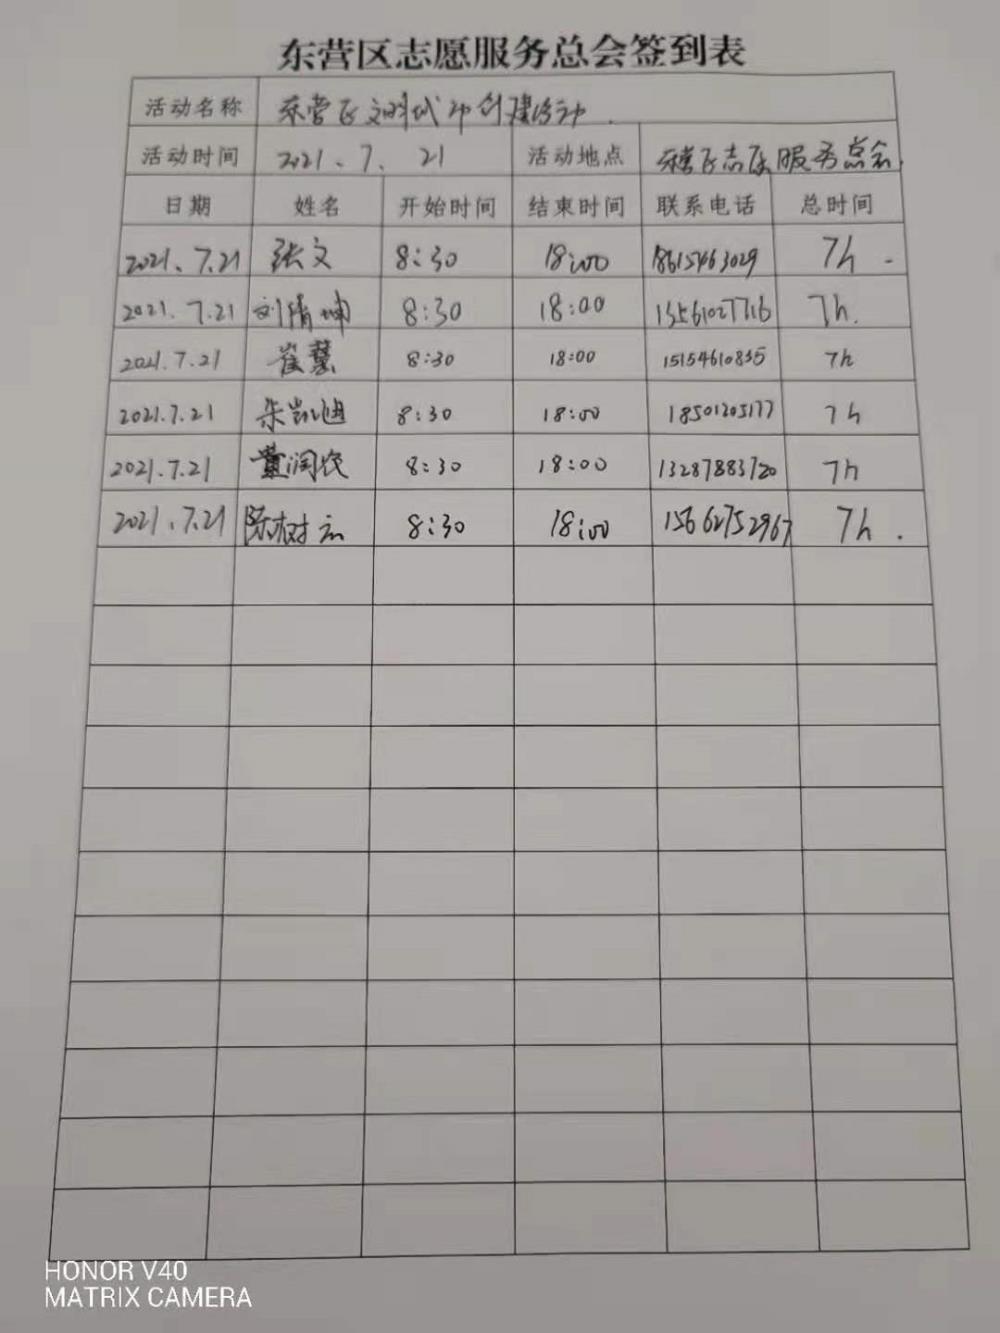 东营区志愿服务总会签到表
活动名称 东营区文明城市创建活动.
活动时间 2021.7.21 活动地点 东营区志愿服务总会.
日期 姓名 开始时间 结束时间 联系电话 总时间
2021.7.21 张文 8:30 18:00 18615463029 7h.
2021.7.21 刘倩坤 8:30 18:00 13561027716 7h.
2021.7.21 崔 8:30 18:00 15154610835 7h
2021.7.21 朱凯迪 8:30 18:00 18501205177 7h
2021.7.21 润 8:30 18:00 13287883720 7h
2021.7.21 陈树云 8:30 18:00 15662752967 7h.
HONOR V40
MATRIX CAMERA